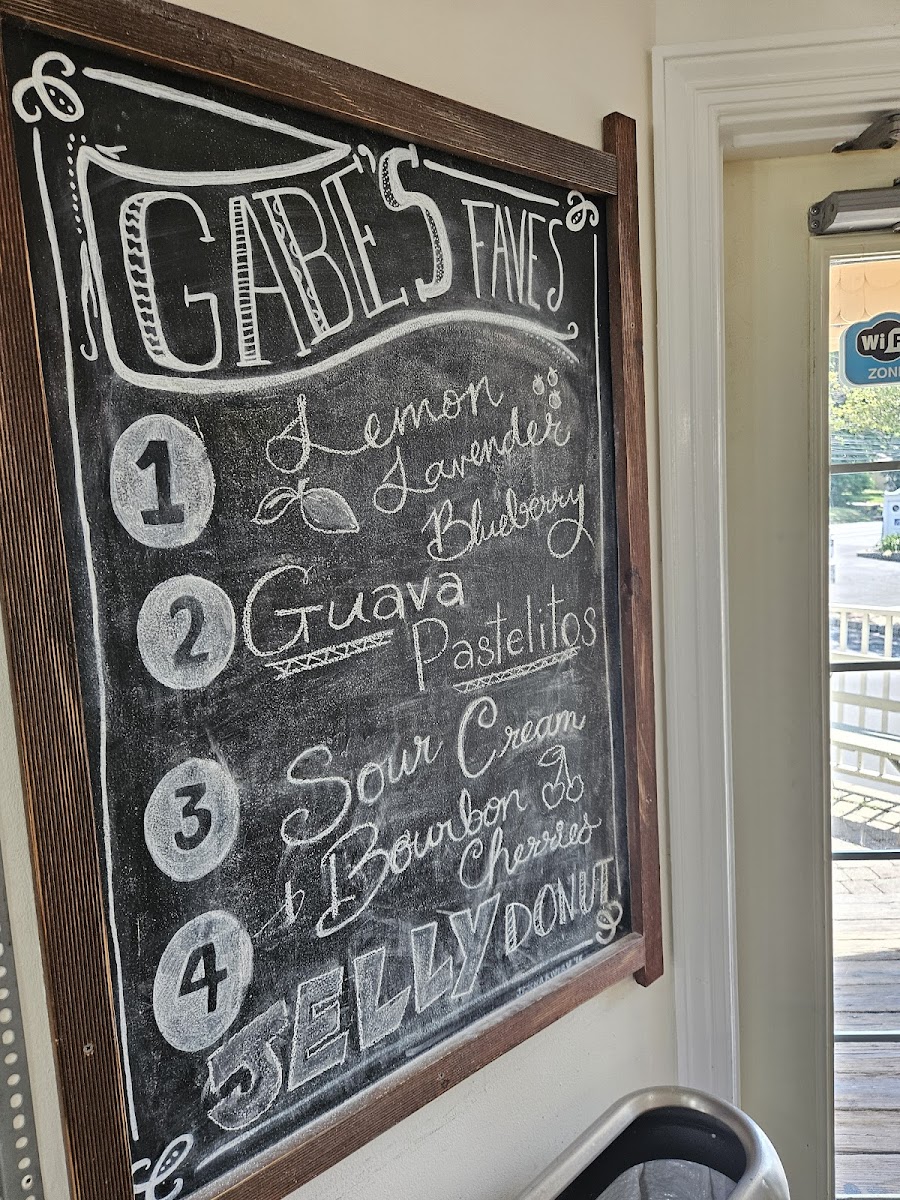 GABE'S FAVES
1 Lemon
Lavender
Blueberry
2 Guava
Pastelitos
3 Sour Cream
& Bourbon
Cherries
4 JELLY DONUT
WiF
ZONE